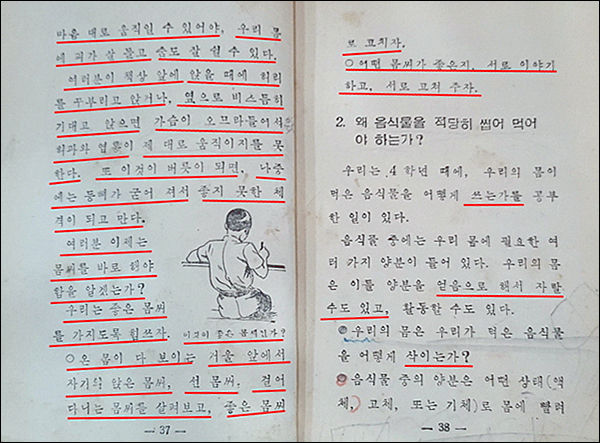 마음 대로 움직일 수 있어야, 우리 몸
에 피가 잘 돌고 숨도 잘 쉴 수 있다.
여러분이 책상 앞에 앉을 때에 허리
를 꾸부리고 앉거나, 옆으로 비스듬히
기대고 앉으면 가슴이 오므라들어서
허파와 염통이 제 대로 움직이지를 못
한다. 또 이것이 버릇이 되면, 나중
에는 등뼈가 굳어 져서 좋지 못한 체
격이 되고 만다.
여러분 이제는
몸씨를 바로 해야
함을 알겠는가?
우리는 좋은 몸씨
를 가지도록 힘쓰자.
이것이 좋은 몸씨인가?
○온 몸이 다 보이는 거울 앞에서
자기의 앉은 몸씨, 선 몸씨, 걸어
다니는 몸씨를 살펴보고, 좋은 몸씨
— 37 —
로 고치자.
○어떤 몸씨가 좋은지, 서로 이야기
하고, 서로 고쳐 주자.
2. 왜 음식물을 적당히 씹어 먹어
야 하는가?
우리는 4 학년 때에, 우리의 몸이
먹은 음식물을 어떻게 쓰는가를 공부
한 일이 있다.
음식물 중에는 우리 몸에 필요한 여
러 가지 양분이 들어 있다. 우리의 몸
은 이들 양분을 얻음으로 해서 자랄
수도 있고, 활동할 수도 있다.
◉우리의 몸은 우리가 먹은 음식물
을 어떻게 삭이는가?
◉음식물 중의 양분은 어떤 상태(액
체, 고체, 또는 기체)로 몸에 빨려
— 38 —